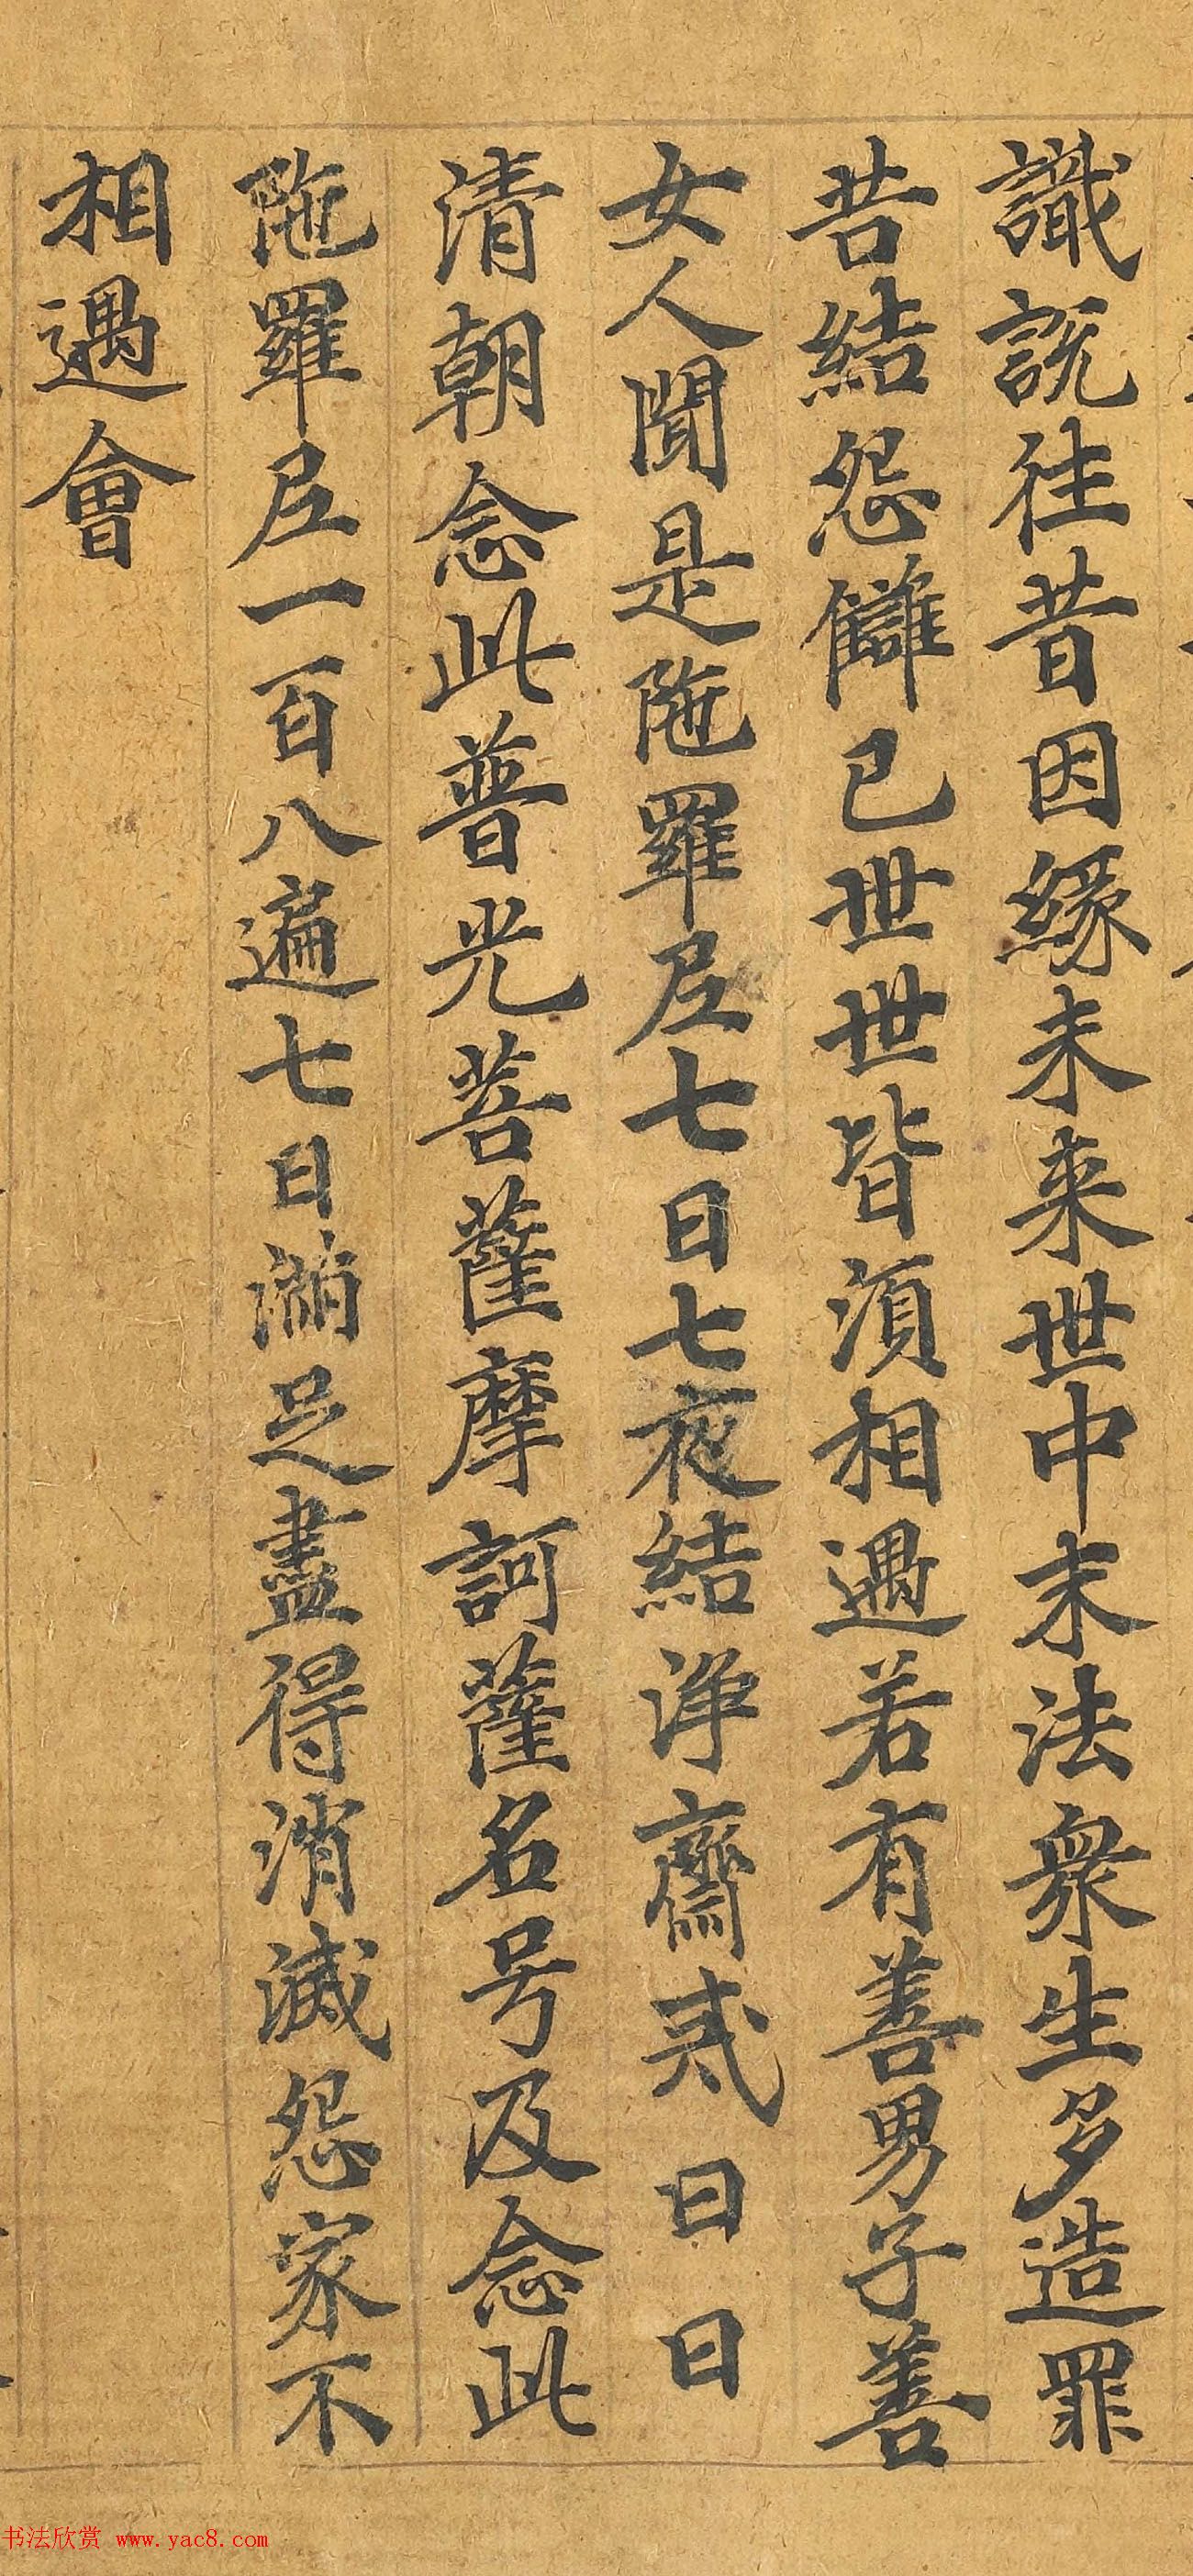 識說往昔因緣未来世中末法衆生多造罪
苦結怨讎已世世皆須相遇若有善男子善
女人聞是陁羅尼七日七夜結淨齋貳日日
清朝念此普光菩薩摩訶薩名号及念此
陁羅尼一百八遍七日滿足盡得消滅怨家不
相遇會
书法欣赏 www.yac8.com